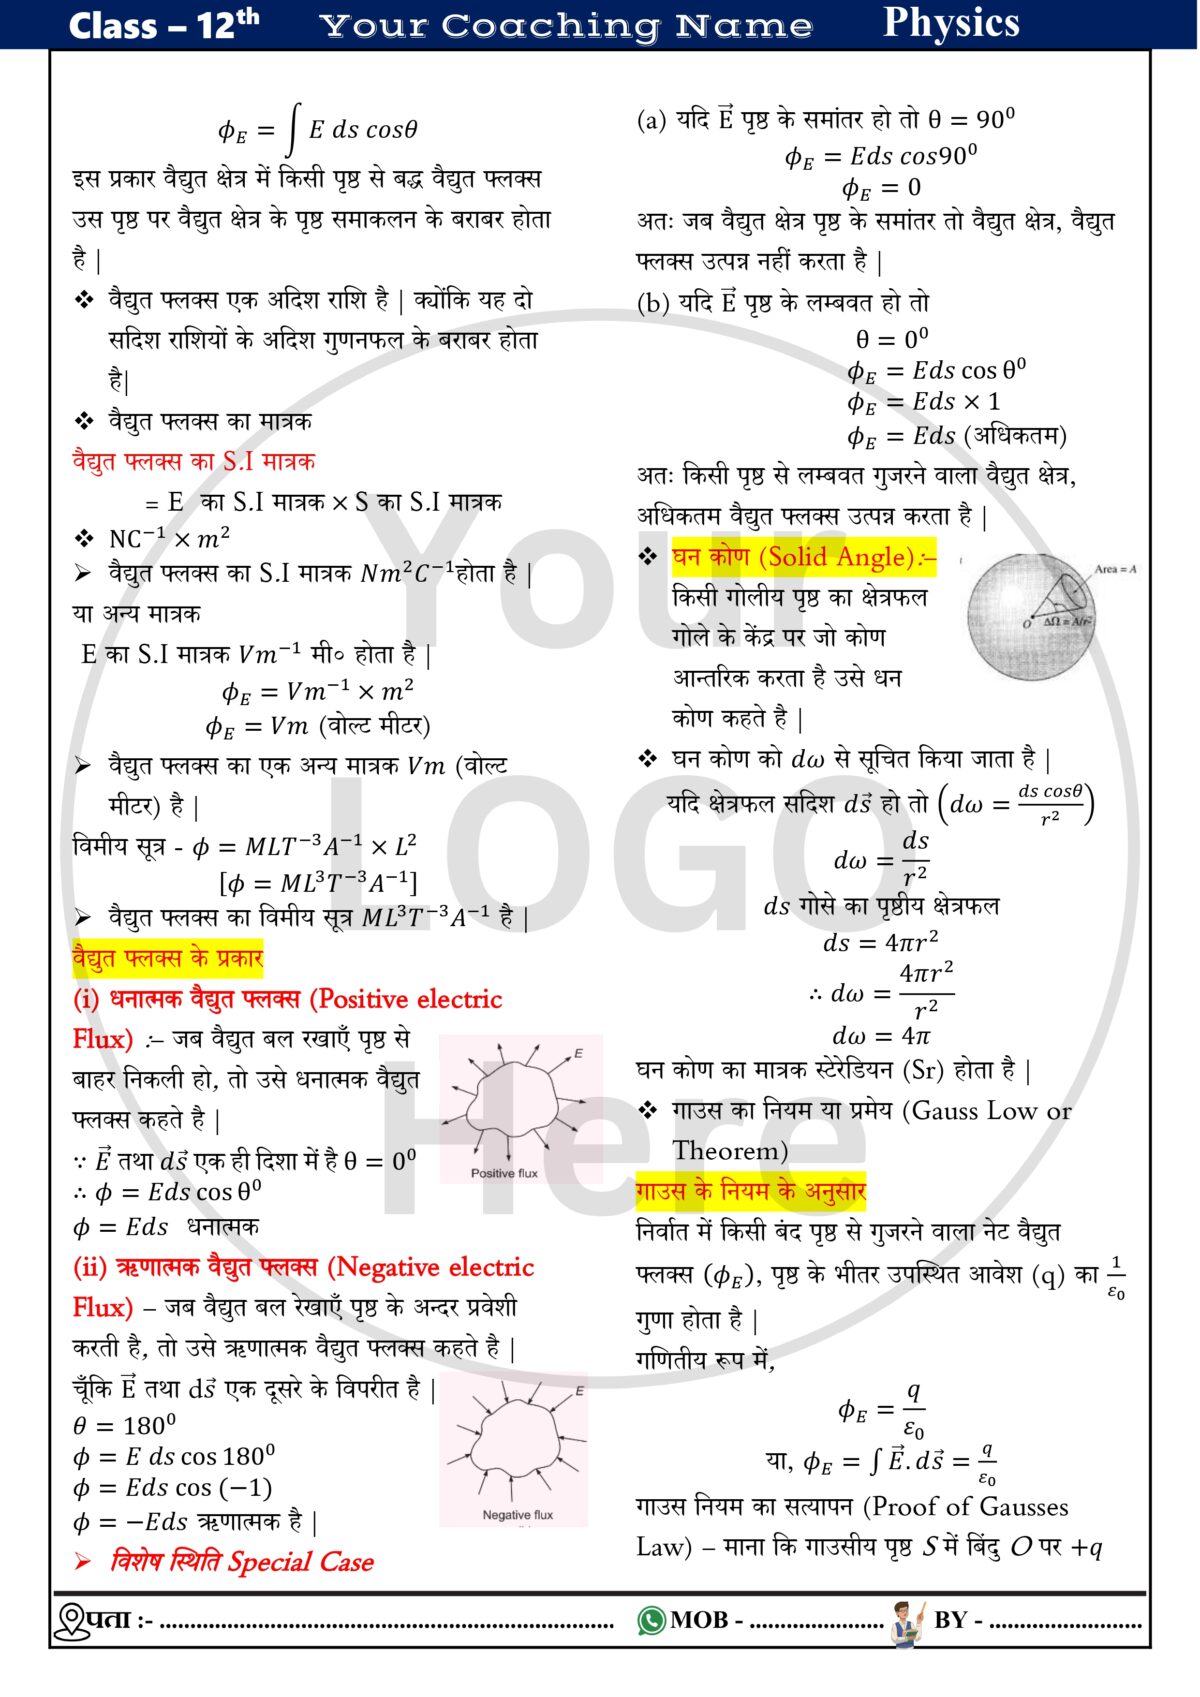 Class – 12th Your Coaching Name Physics
ϕ_E = ∫ E ds cosθ
इस प्रकार वैद्युत क्षेत्र में किसी पृष्ठ से बद्ध वैद्युत फ्लक्स
उस पृष्ठ पर वैद्युत क्षेत्र के पृष्ठ समाकलन के बराबर होता
है |
❖ वैद्युत फ्लक्स एक अदिश राशि है | क्योंकि यह दो
सदिश राशियों के अदिश गुणनफल के बराबर होता
है|
❖ वैद्युत फ्लक्स का मात्रक
वैद्युत फ्लक्स का S.I मात्रक
= E का S.I मात्रक × S का S.I मात्रक
❖ NC⁻¹ × m²
➢ वैद्युत फ्लक्स का S.I मात्रक Nm²C⁻¹होता है |
या अन्य मात्रक
E का S.I मात्रक Vm⁻¹ मी० होता है |
ϕ_E = Vm⁻¹ × m²
ϕ_E = Vm (वोल्ट मीटर)
➢ वैद्युत फ्लक्स का एक अन्य मात्रक Vm (वोल्ट
मीटर) है |
विमीय सूत्र - ϕ = MLT⁻³A⁻¹ × L²
[ϕ = ML³T⁻³A⁻¹]
➢ वैद्युत फ्लक्स का विमीय सूत्र ML³T⁻³A⁻¹ है |
वैद्युत फ्लक्स के प्रकार
(i) धनात्मक वैद्युत फ्लक्स (Positive electric
Flux) :– जब वैद्युत बल रखाएँ पृष्ठ से
बाहर निकली हो, तो उसे धनात्मक वैद्युत
फ्लक्स कहते है |
E
Positive flux
∵ E⃗ तथा ds⃗ एक ही दिशा में है θ = 0⁰
∴ ϕ = Eds cos θ⁰
ϕ = Eds धनात्मक
(ii) ऋणात्मक वैद्युत फ्लक्स (Negative electric
Flux) – जब वैद्युत बल रेखाएँ पृष्ठ के अन्दर प्रवेशी
करती है, तो उसे ऋणात्मक वैद्युत फ्लक्स कहते है |
चूँकि E⃗ तथा ds⃗ एक दूसरे के विपरीत है |
θ = 180⁰
ϕ = E ds cos 180⁰
ϕ = Eds cos (−1)
ϕ = −Eds ऋणात्मक है |
E
Negative flux
➢ विशेष स्थिति Special Case
(a) यदि E⃗ पृष्ठ के समांतर हो तो θ = 90⁰
ϕ_E = Eds cos90⁰
ϕ_E = 0
अतः जब वैद्युत क्षेत्र पृष्ठ के समांतर तो वैद्युत क्षेत्र, वैद्युत
फ्लक्स उत्पन्न नहीं करता है |
(b) यदि E⃗ पृष्ठ के लम्बवत हो तो
θ = 0⁰
ϕ_E = Eds cos θ⁰
ϕ_E = Eds × 1
ϕ_E = Eds (अधिकतम)
अतः किसी पृष्ठ से लम्बवत गुजरने वाला वैद्युत क्षेत्र,
अधिकतम वैद्युत फ्लक्स उत्पन्न करता है |
❖ घन कोण (Solid Angle):–
किसी गोलीय पृष्ठ का क्षेत्रफल
गोले के केंद्र पर जो कोण
आन्तरिक करता है उसे धन
कोण कहते है |
Area = A
O ΔΩ = A/r²
❖ घन कोण को dω से सूचित किया जाता है |
यदि क्षेत्रफल सदिश ds⃗ हो तो (dω = ds cosθ / r²)
dω = ds / r²
ds गोसे का पृष्ठीय क्षेत्रफल
ds = 4πr²
∴ dω = 4πr² / r²
dω = 4π
घन कोण का मात्रक स्टेरेडियन (Sr) होता है |
❖ गाउस का नियम या प्रमेय (Gauss Low or
Theorem)
गाउस के नियम के अनुसार
निर्वात में किसी बंद पृष्ठ से गुजरने वाला नेट वैद्युत
फ्लक्स (ϕ_E), पृष्ठ के भीतर उपस्थित आवेश (q) का 1/ε₀
गुणा होता है |
गणितीय रूप में,
ϕ_E = q / ε₀
या, ϕ_E = ∫ E⃗. ds⃗ = q/ε₀
गाउस नियम का सत्यापन (Proof of Gausses
Law) – माना कि गाउसीय पृष्ठ S में बिंदु O पर +q
Your
LOGO
Here
पता :- ........................................................................... MOB - ...................... BY - .........................